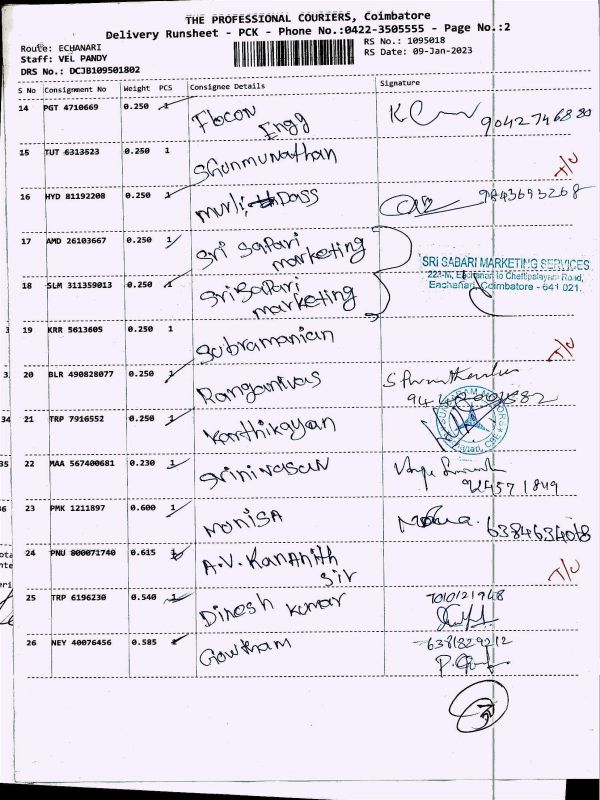 THE PROFESSIONAL COURIERS, Coimbatore
Delivery Runsheet - PCK - Phone No.:0422-3505555 - Page No.:2
Route: ECHANARI
RS No.: 1095018
Staff: VEL PANDY
RS Date: 09-Jan-2023
DRS No.: DCJB109501802
S No Consignment No Weight PCS Consignee Details Signature
14 PGT 4710669 0.250 1 Flocon Engg
90427 46880
15 TUT 6313523 0.250 1 Shunmunathan
T/U
16 HYD 81192208 0.250 1 Murli Dass
9843693268
17 AMD 26103667 0.250 1 Sri Safari marketing
SRI SABARI MARKETING SERVICES
Eachanari, Coimbatore - 641 021.
18 SLM 311359013 0.250 1 Sri Safari marketing
19 KRR 5613605 0.250 1 Subramanian
T/U
20 BLR 490828077 0.250 1 Ranganivas
21 TRP 7916552 0.250 1 Karthikayan
22 MAA 567400681 0.230 1 Srinivasan
23 PMK 1211897 0.600 1 Monisa
6384634018
24 PNU 800071740 0.615 A.V. Kananith Sir
T/U
25 TRP 6196230 0.540 1 Dinesh Kumar
7010121948
26 NEY 40076456 0.585 1 Gowtham
6381829212